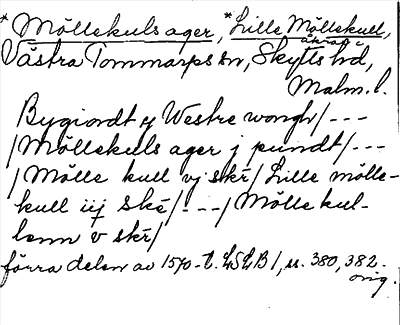 * Möllekuls ager, * Lille Möllekull,
åkrar i
Västra Tommarps sn, Skytts hd,
Malm. l.
Bygiordt y Westre wongh/ ---
/Möllekuls ager j pundt/ ---
/ Mölle kull vj skē/ Lille mölle-
kull iij Skē/ ---/ Mölle kul-
lenn v skē/
förra delen av 1570-t. LSLB 1, s. 380, 382.
orig.